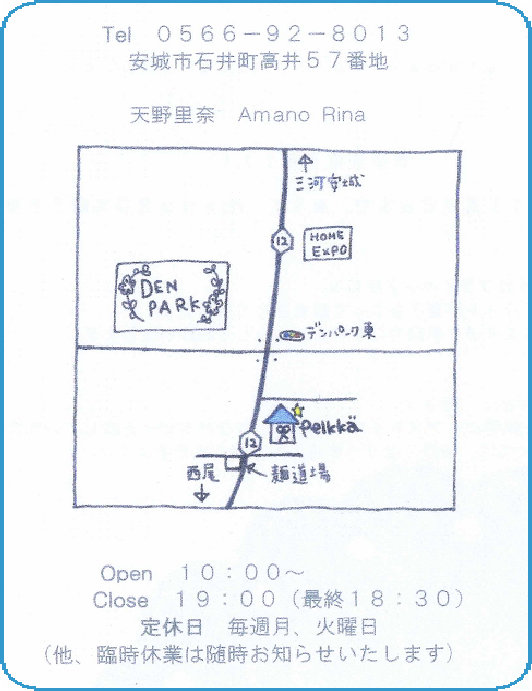 Tel　０５６６－９２－８０１３
安城市石井町高井５７番地
天野里奈　Amano Rina
三河安城
12
HOME
EXPO
DEN
PARK
デンパーク東
pelkkä
12
西尾
麺道場
Open　１０：００～
Close　１９：００（最終１８：３０）
定休日　毎週月、火曜日
（他、臨時休業は随時お知らせいたします）